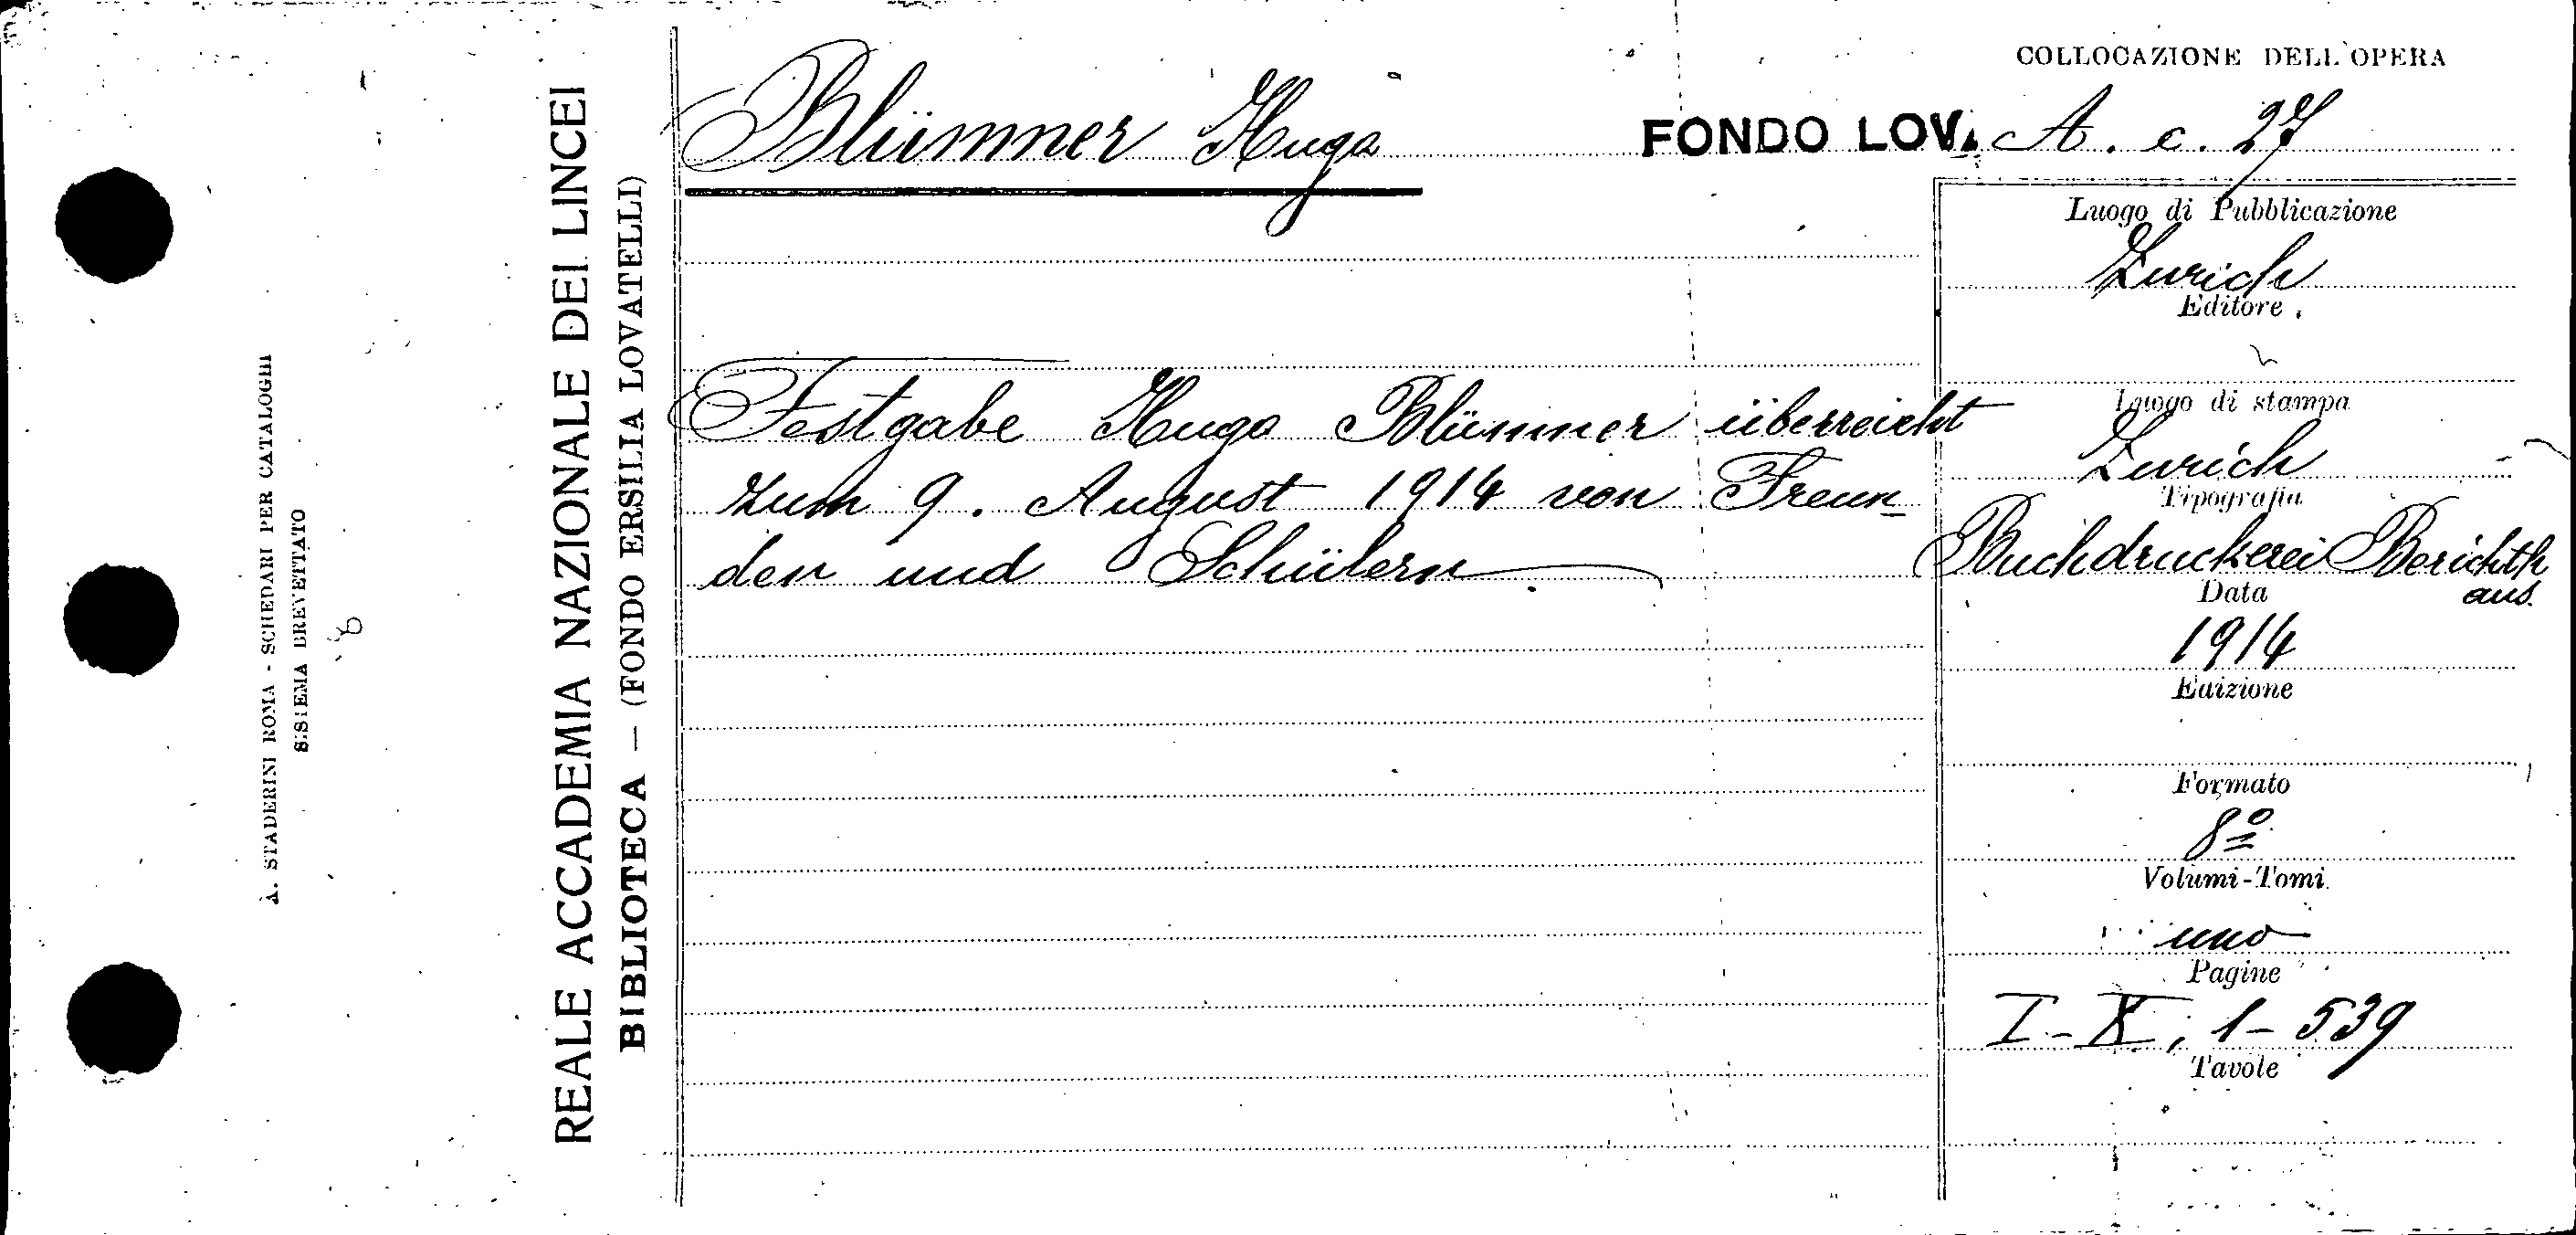 COLLOCAZIONE DELL'OPERA
Blümner Hugo
FONDO LOV. A. c. 27
Festgabe Hugo Blümner überreicht
zum 9. August 1914 von Freun=
den und Schülern
Luogo di Pubblicazione
Zurich
Editore
Luogo di stampa
Zurich
Tipografia
Buchdruckerei Berichth
aus.
Data
1914
Edizione
Formato
8º
Volumi-Tomi
uno
Pagine
I-X, 1-539
Tavole
REALE ACCADEMIA NAZIONALE DEI LINCEI
BIBLIOTECA — (FONDO ERSILIA LOVATELLI)
A. STADERINI ROMA - SCHEDARI PER CATALOGHI
SISTEMA BREVETTATO